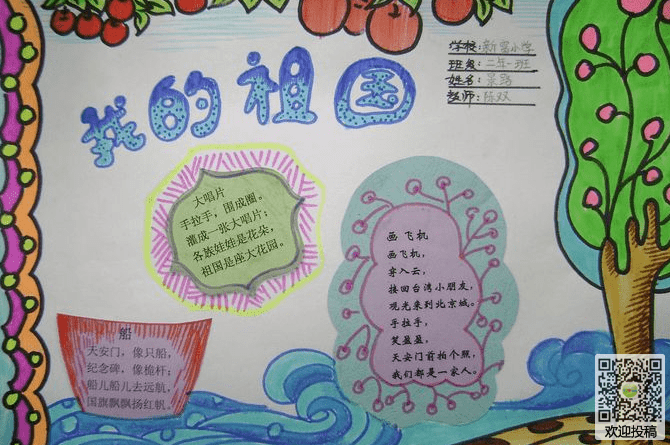 我的祖国
学校:新雷小学
班级:二年一班
姓名:景路
教师:陈双
大唱片
手拉手,围成圈。
灌成一张大唱片;
各族娃娃是花朵,
祖国是座大花园。
画飞机
画飞机,
穿入云,
接回台湾小朋友,
观光来到北京城。
手拉手,
笑盈盈,
天安门首拍个照,
我们都是一家人。
船
天安门,像只船,
纪念碑,像桅杆;
船儿船儿去远航,
国旗飘飘扬红帆。
欢迎投稿